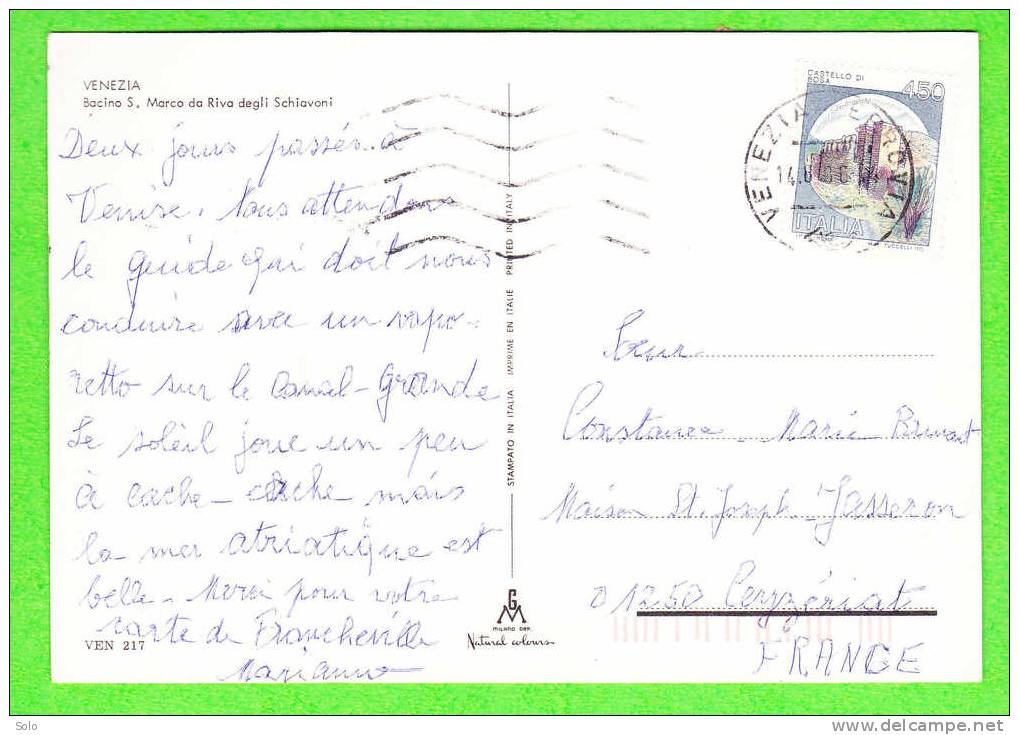 VENEZIA
Bacino S. Marco da Riva degli Schiavoni
Deux jours passés à
Venise. Nous attendons
le guide qui doit nous
conduire avec un vapo-
retto sur le Canal-Grande
Le soleil joue un peu
à cache-cache mais
la mer atriatique est
belle. Merci pour votre
carte de Francheville
VEN 217
STAMPATO IN ITALIA IMPRIME EN ITALIE PRINTED IN ITALY
MILANO DEP.
Natural colours
CASTELLO DI
BOSA
450
ITALIA
VENEZIA FERROVIA
Sœur
Constance-Marie
Maison St. Joseph-Jasseron
01250 Ceyzériat
FRANCE
Solo
www.delcampe.net